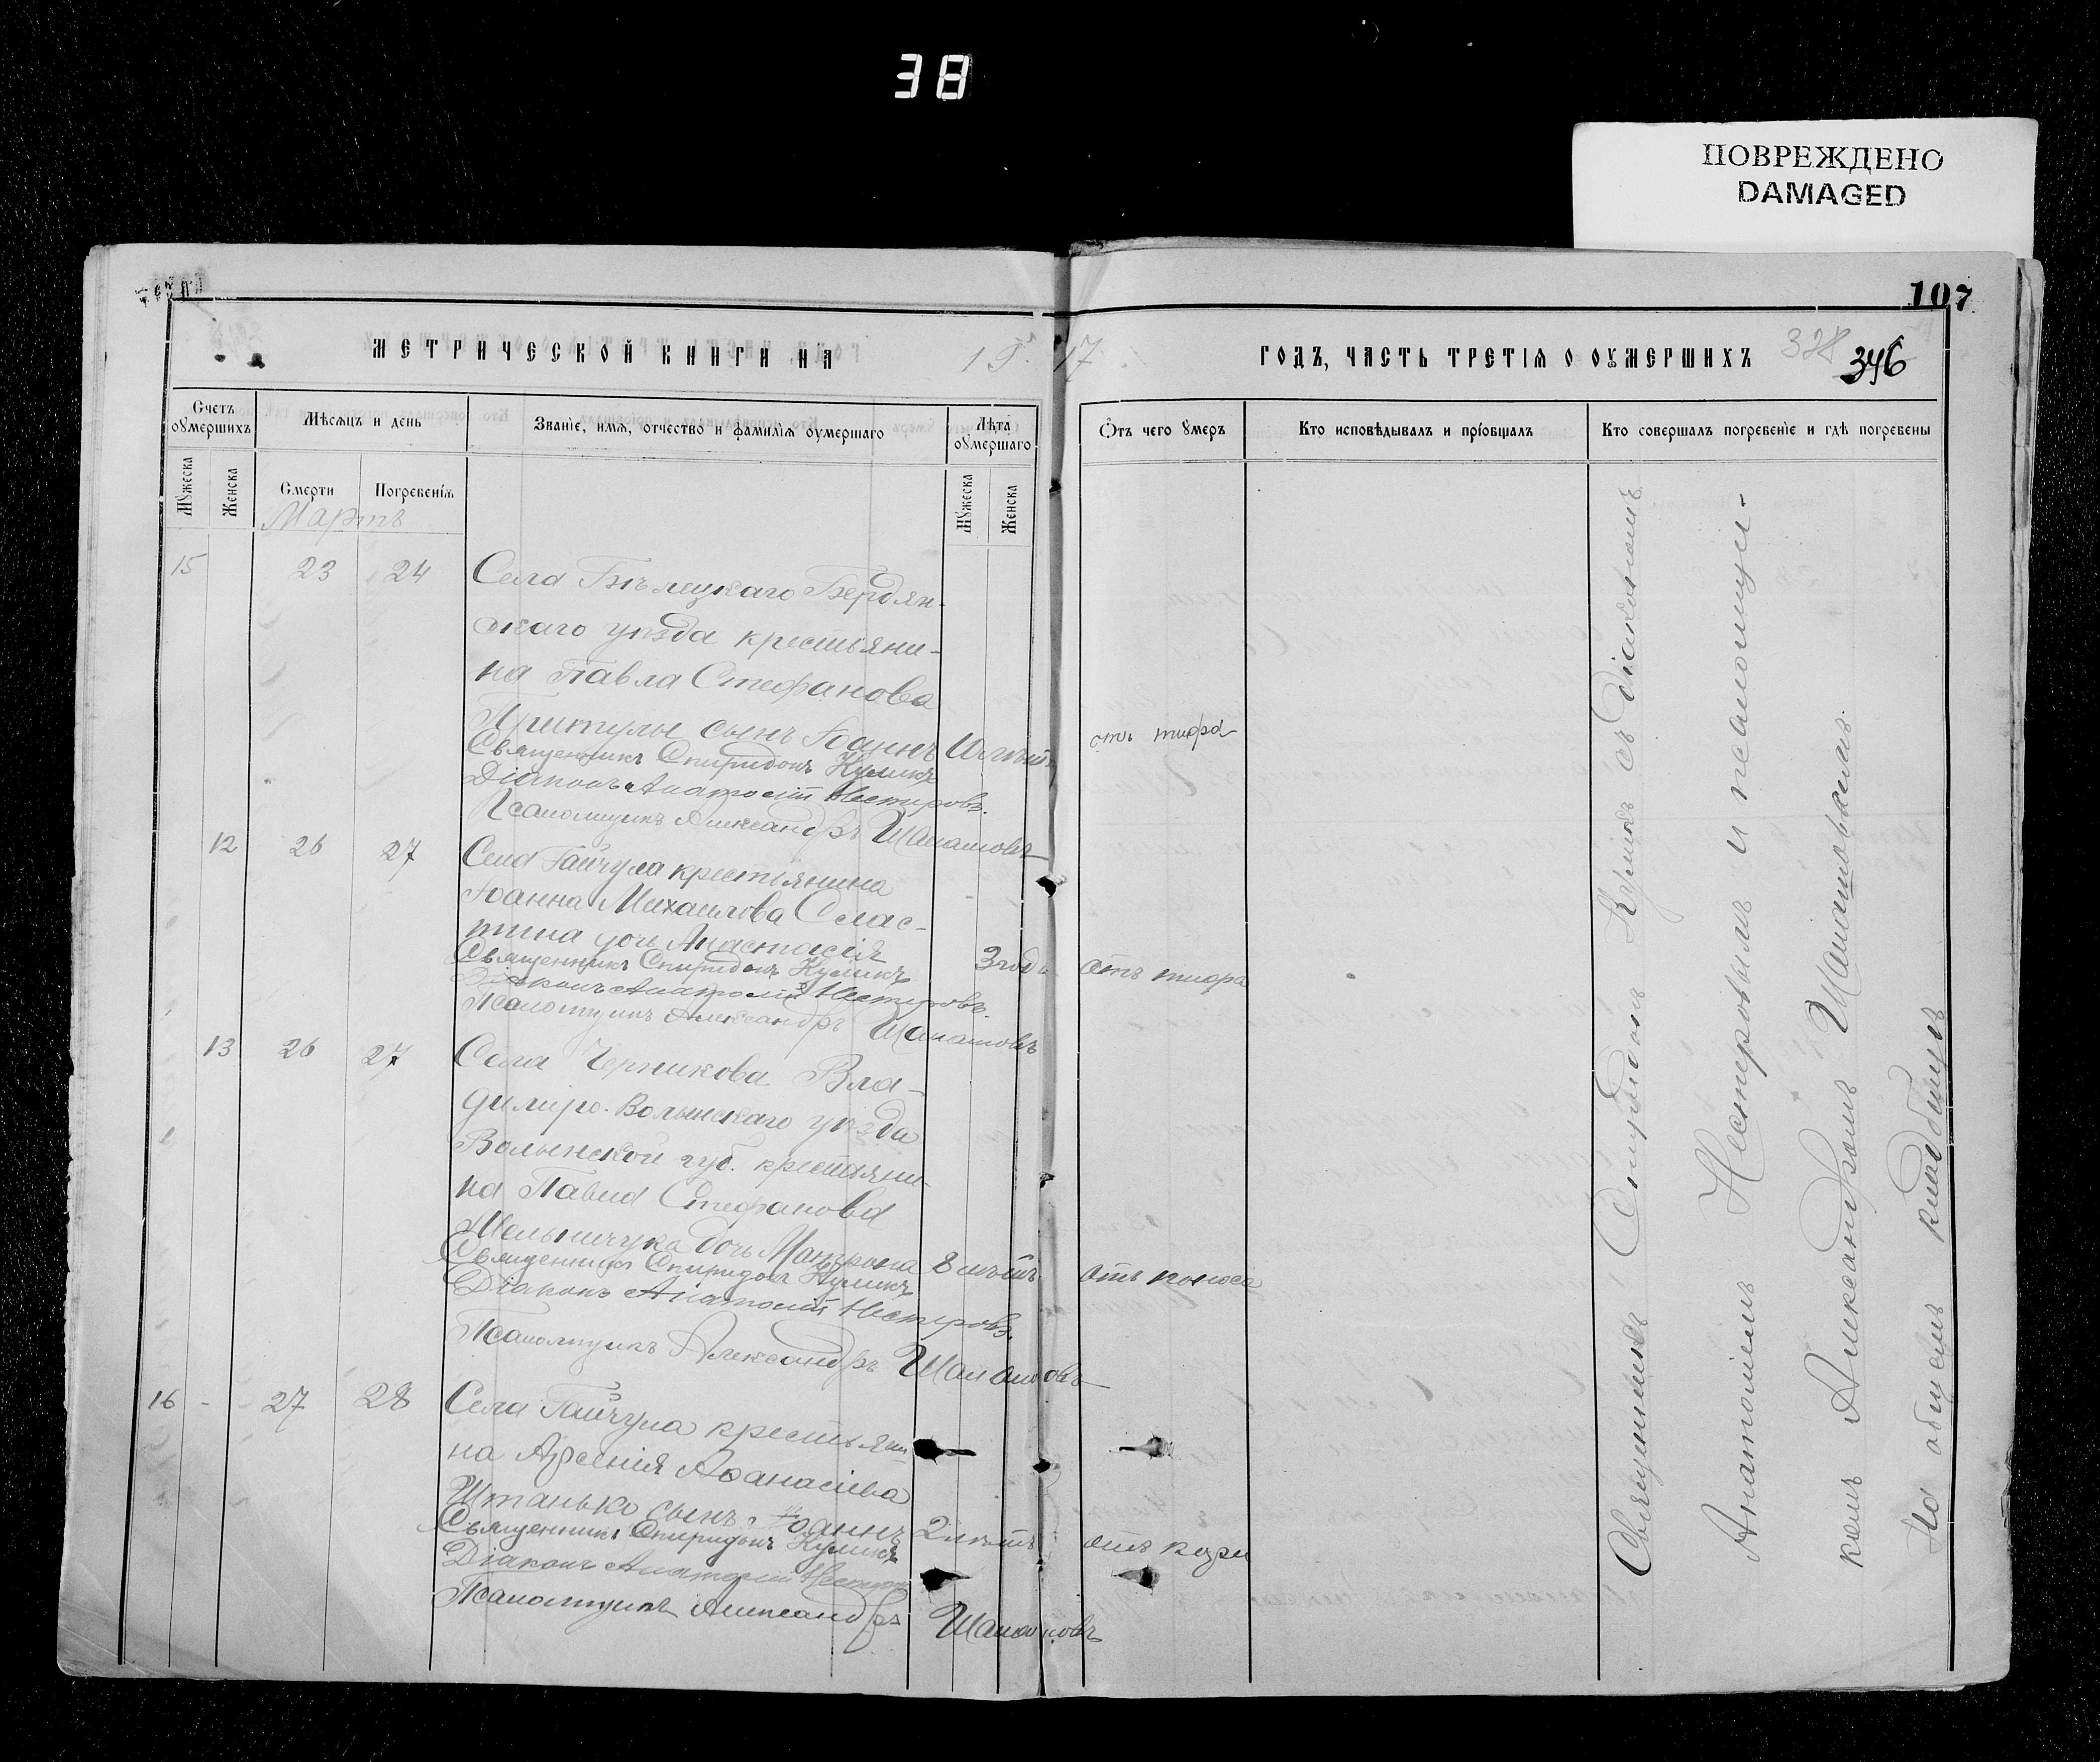 38
ПОВРЕЖДЕНО
DAMAGED
107
МЕТРИЧЕСКОЙ КНИГИ НА 1917 ГОДЪ, ЧАСТЬ ТРЕТІЯ О ОУМЕРШИХЪ
328 346
Счетъ оумершихъ
Мѣсяцъ и день
Званіе, имя, отчество и фамилія оумершаго
Лѣта оумершаго
Отъ чего оумеръ
Кто исповѣдывалъ и пріобщалъ
Кто совершалъ погребеніе и гдѣ погребены
Мужеска
Женска
Смерти
Погребенія
Мужеска
Женска
Мартъ
15 23 24 Села Бѣлецкаго Бердян-
скаго уѣзда крестьяни-
на Павла Стефанова
Притулы сынъ Іоаннъ отъ тифа
Священникъ Спиридонъ Куликъ
Діаконъ Анатолій Нестеровъ.
Псаломщикъ Александръ
12 26 27 Села Гайчула крестьянина
Іоанна Михаилова Слас-
тина дочь Анастасія
3 года отъ тифа
Священникъ Спиридонъ Куликъ
Діаконъ Анатолій Нестеровъ.
Псаломщикъ Александръ
13 26 27 Села Черникова Вла-
димиро-Волынскаго уѣзда
Волынской губ. крестьяни-
на Павла Стефанова
Мельничука дочь Матрона 8 лѣтъ отъ поноса
Священникъ Спиридонъ Куликъ
Діаконъ Анатолій Нестеровъ.
Псаломщикъ Александръ
16 - 27 28 Села Гайчула крестьяни-
на Арсенія Аѳанасіева
Штанько сынъ Іоаннъ 2 лѣтъ отъ кори
Священникъ Спиридонъ Куликъ
Діаконъ Анатолій Нестеровъ
Псаломщикъ Александръ
Священникъ Спиридонъ Куликъ съ діакономъ
Анатоліемъ Нестеровымъ и псаломщи-
комъ Александромъ
На общемъ кладбищѣ